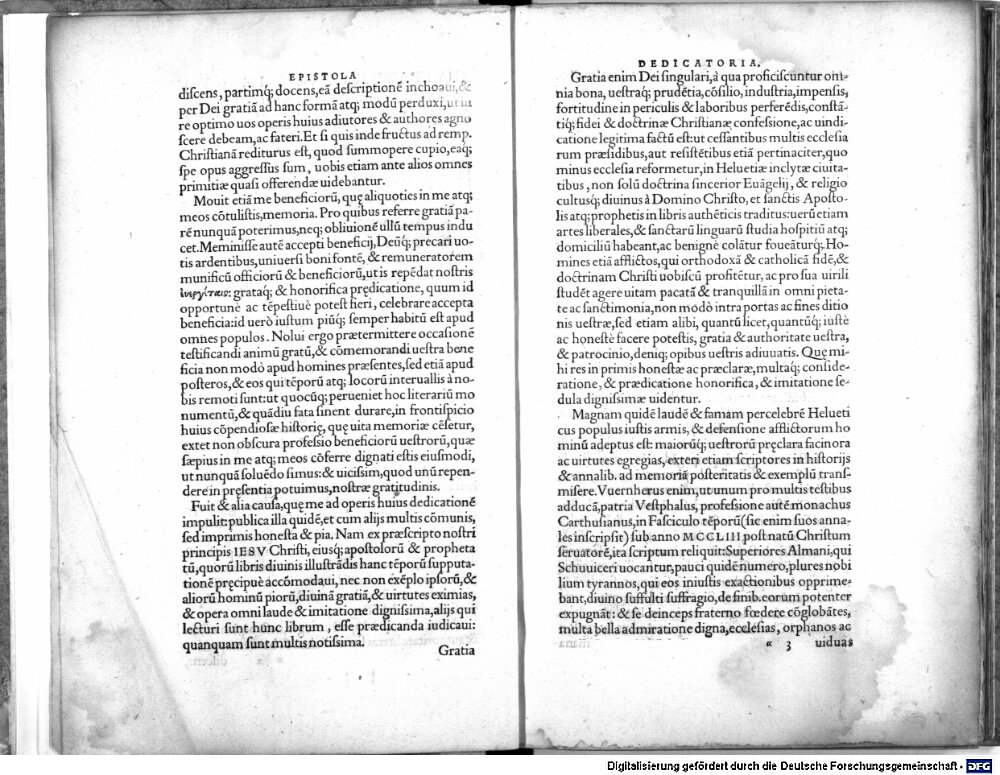 EPISTOLA
discens, partimq́; docens, eā descriptionē inchoaui, &
per Dei gratiā ad hanc formā atq; modū perduxi, ut iu
re optimo uos operis huius adiutores & authores agno
scere debeam, ac fateri. Et si quis inde fructus ad remp.
Christianā rediturus est, quod summopere cupio, eaq́;
spe opus aggressus sum, uobis etiam ante alios omnes
primitiæ quasi offerendæ uidebantur.
Mouit etiā me beneficiorū, quę aliquoties in me atq;
meos cōtulistis, memoria. Pro quibus referre gratiā pa-
rē nunquā poterimus, neq; obliuionē ullū tempus indu
cet. Meminisse autē accepti beneficij, Deūq́; precari uo-
tis ardentibus, uniuersi boni fontē, & remuneratorem
munificū officiorū & beneficiorū, ut is repēdat nostris
ἐυεργέταις: grataq́; & honorifica prędicatione, quum id
opportunè ac tēpestiuè potest fieri, celebrare accepta
beneficia: id uerò iustum piūq́; semper habitū est apud
omnes populos. Nolui ergo prætermittere occasionē
testificandi animū gratū, & cōmemorandi uestra bene
ficia non modò apud homines præsentes, sed etiā apud
posteros, & eos qui tēporū atq; locorū interuallis à no-
bis remoti sunt: ut quocūq; perueniet hoc literariū mo
numentū, & quādiu fata sinent durare, in frontispicio
huius cōpendiosæ historię, quę uita memoriæ cēsetur,
extet non obscura professio beneficiorū uestrorū, quæ
sæpius in me atq; meos cōferre dignati estis eiusmodi,
ut nunquā soluēdo simus: & uicissim, quod unū repen-
dere in pręsentia potuimus, nostræ gratitudinis.
Fuit & alia causa, quę me ad operis huius dedicationē
impulit: publica illa quidē, et cum alijs multis cōmunis,
sed imprimis honesta & pia. Nam ex præscripto nostri
principis IESV Christi, eiusq́; apostolorū & propheta
tū, quorū libris diuinis illustrādis hanc tēporū supputa-
tionē pręcipuè accōmodaui, nec non exēplo ipsorū, &
aliorū hominū piorū, diuinā gratiā, & uirtutes eximias,
& opera omni laude & imitatione dignissima, alijs qui
lecturi sunt hunc librum, esse prædicanda iudicaui:
quanquam sunt multis notissima.
Gratia
DEDICATORIA.
Gratia enim Dei singulari, à qua proficiscuntur om-
nia bona, uestraq́; prudētia, cōsilio, industria, impensis,
fortitudine in periculis & laboribus perferēdis, constā-
tiq́; fidei & doctrinæ Christianę confessione, ac uindi-
catione legitima factū est: ut cessantibus multis ecclesia
rum præsidibus, aut resistētibus etiā pertinaciter, quo
minus ecclesia reformetur, in Heluetiæ inclytæ ciuita-
tibus, non solū doctrina sincerior Euāgelij, & religio
cultusq́; diuinus à Domino Christo, et sanctis Aposto-
lis atq; prophetis in libris authēticis traditus: uerū etiam
artes liberales, & sanctarū linguarū studia hospitiū atq;
domiciliū habeant, ac benignè colātur foueāturq́;. Ho-
mines etiā afflictos, qui orthodoxā & catholicā fidē, &
doctrinam Christi uobiscū profitētur, ac pro sua uirili
studēt agere uitam pacatā & tranquillā in omni pieta-
te ac sanctimonia, non modò intra portas ac fines ditio
nis uestræ, sed etiam alibi, quantū licet, quantūq́; iustè
ac honestè facere potestis, gratia & authoritate uestra,
& patrocinio, deniq; opibus uestris adiuuatis. Quę mi-
hi res in primis honestæ ac præclaræ, multaq́; conside-
ratione, & prædicatione honorifica, & imitatione se-
dula dignissimæ uidentur.
Magnam quidē laudē & famam percelebrē Helueti
cus populus iustis armis, & defensione afflictorum ho
minū adeptus est: maiorūq́; uestrorū pręclara facinora
ac uirtutes egregias, exteri etiam scriptores in historijs
& annalib. ad memoriā posteritatis & exemplū trans-
misere. Vuernherus enim, ut unum pro multis testibus
adducā, patria Vestphalus, professione autē monachus
Carthusianus, in Fasciculo tēporū (sic enim suos anna-
les inscripsit) sub anno MCCLIII post natū Christum
seruatorē, ita scriptum reliquit: Superiores Almani, qui
Schuuiceri uocantur, pauci quidē numero, plures nobi
lium tyrannos, qui eos iniustis exactionibus opprime-
bant, diuino suffulti suffragio, de finib. eorum potenter
expugnāt: & se deinceps fraterno fœdere cōglobātes,
multa bella admiratione digna, ecclesias, orphanos ac
α 3 uiduas
Digitalisierung gefördert durch die Deutsche Forschungsgemeinschaft - DFG